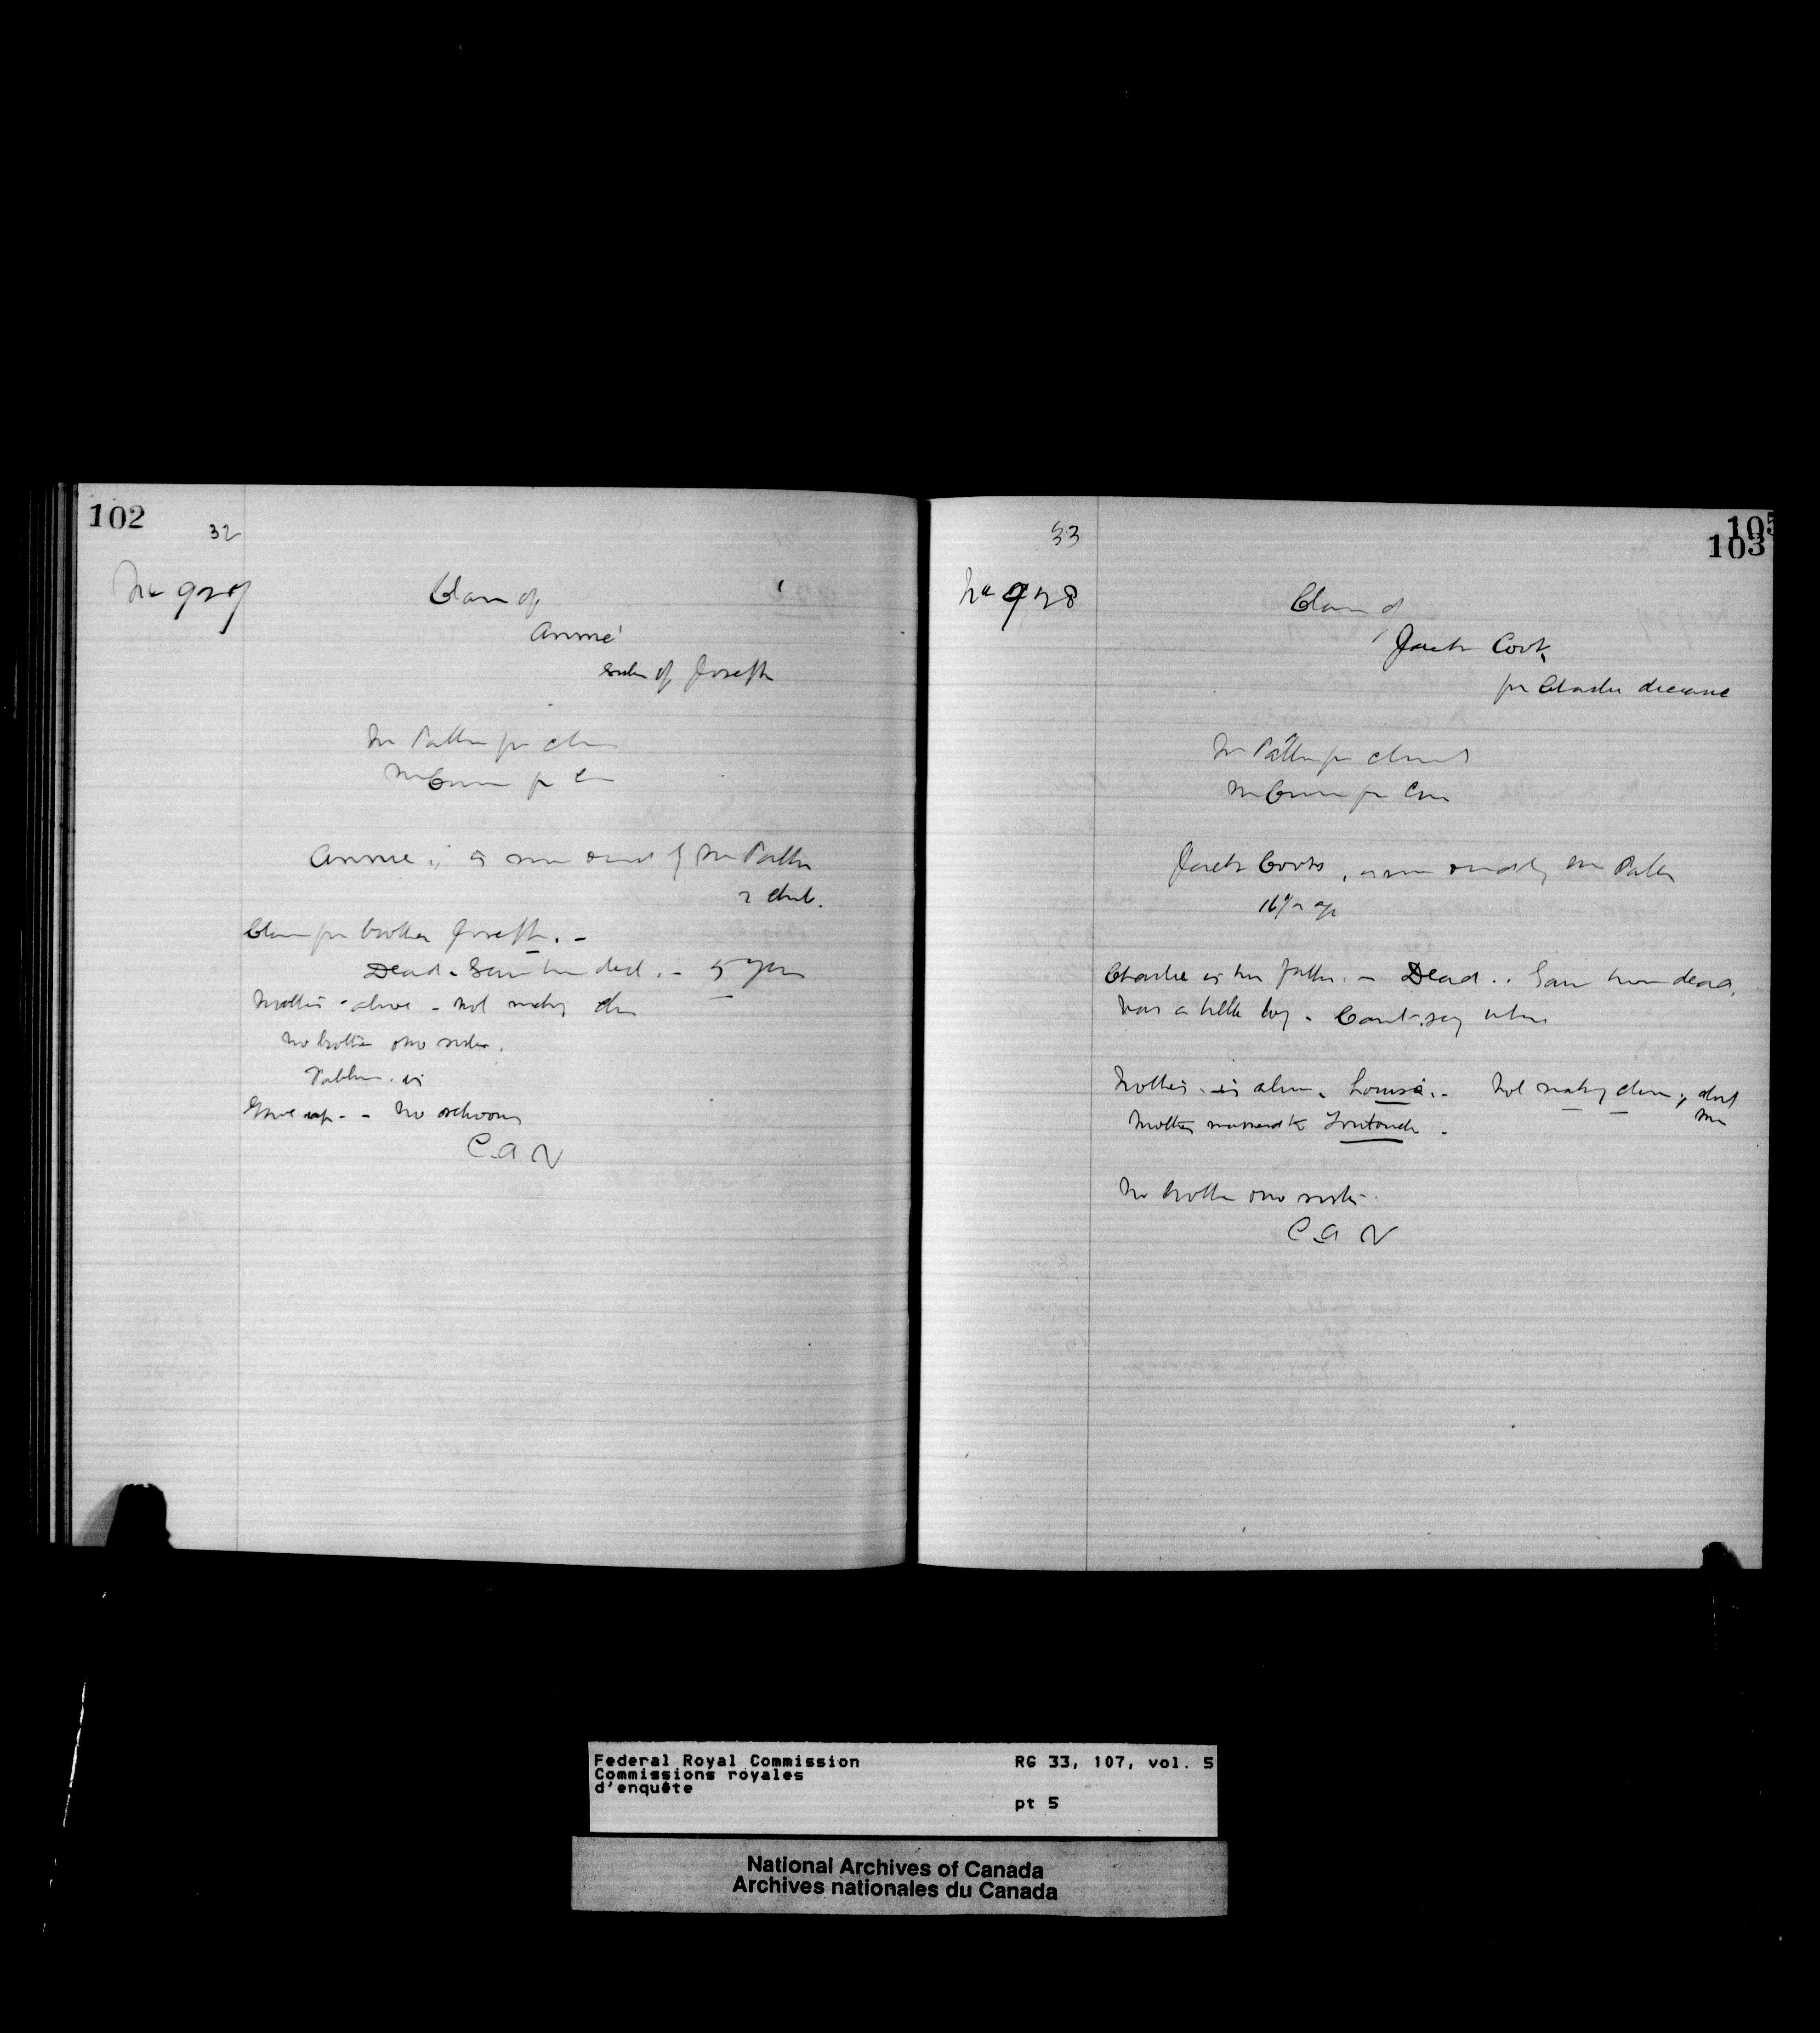 102
32
No 927
Claim of
Annie
sister of Joseph
Mr for claim
Mr for
Annie is sworn and by Mr
Claim for brother Joseph. -
Dead - Saw him dead. - 5 years
Mother - alive - not making claim
No brother or no sister.
Gave up - - No
C.A N
103
105
33
No 928
Claim of
Jack Cook
for Charlie deceased
Mr for claimant
Mr for
Jack Cook, is sworn and by Mr
16 yr age
Charlie is his father. - Dead. . Saw him dead.
Was a little boy - Can't say when
Mother is alive. Louisa. - Not making claim
Mother married to
No brother or no sister.
C.A N
Federal Royal Commission
Commissions royales
d'enquête
RG 33, 107, vol. 5
pt 5
National Archives of Canada
Archives nationales du Canada